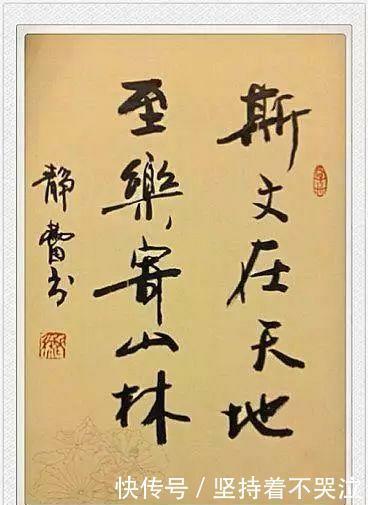 斯文在天地
至樂寄山林
静賢书
快传号/坚持着不哭泣